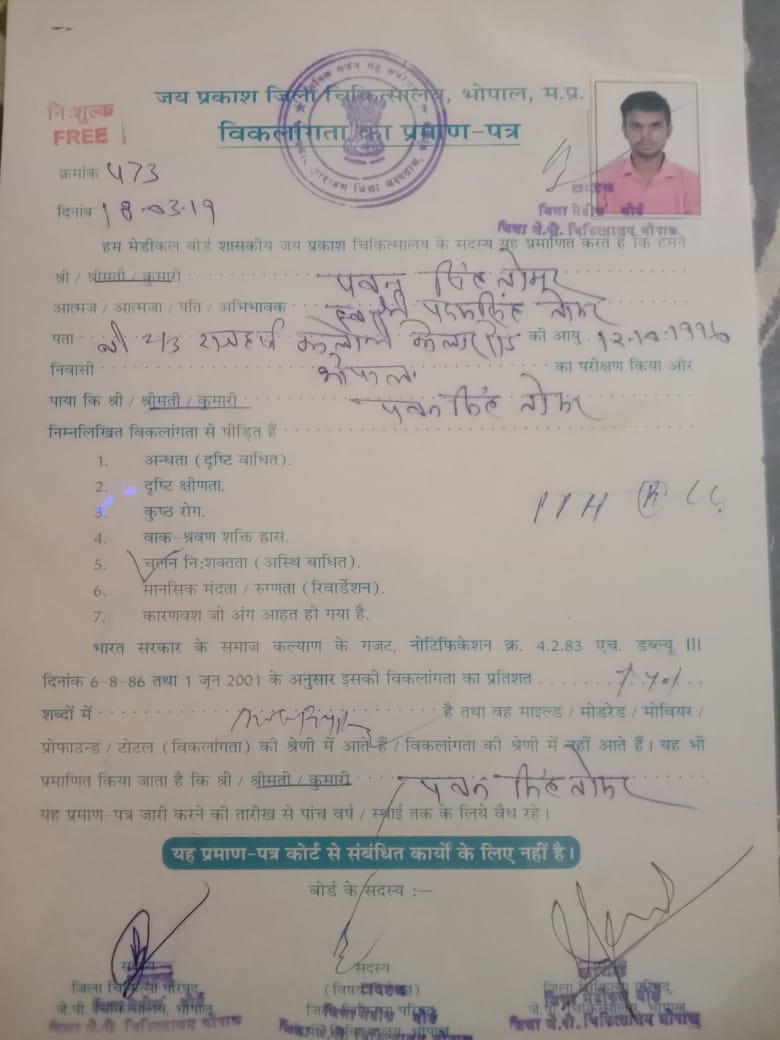 जय प्रकाश जिला चिकित्सालय, भोपाल, म.प्र.
विकलांगता का प्रमाण-पत्र
नि:शुल्क
FREE
क्रमांक 473
दिनांक 18-03-19
जिला मेडीकल बोर्ड
जिला जे.पी. चिकित्सालय भोपाल
हम मेडीकल बोर्ड शासकीय जय प्रकाश चिकित्सालय के सदस्य यह प्रमाणित करते हैं कि हमने
श्री / श्रीमती / कुमारी सिंह तोमर
आत्मज / आत्मजा / पति / अभिभावक सिंह तोमर
पता की आयु 12.10.1996
निवासी भोपाल का परीक्षण किया और
पाया कि श्री / श्रीमती / कुमारी सिंह तोमर
निम्नलिखित विकलांगता से पीड़ित हैं
1. अन्धता (दृष्टि बाधित).
2. दृष्टि क्षीणता.
3. कुष्ठ रोग.
4. वाक-श्रवण शक्ति ह्रास.
5. चलन नि:शक्तता (अस्थि बाधित).
6. मानसिक मंदता / रुग्णता (रिवार्डेशन).
7. कारणवश जो अंग आहत हो गया है.
भारत सरकार के समाज कल्याण के गजट, नोटिफिकेशन क्र. 4.2.83 एच. डब्ल्यू III
दिनांक 6-8-86 तथा 1 जून 2001 के अनुसार इसकी विकलांगता का प्रतिशत
शब्दों में है तथा वह माइल्ड / मोडरेड / मोवियर /
प्रोफाउन्ड / टोटल (विकलांगता) की श्रेणी में आते हैं / विकलांगता की श्रेणी में नहीं आते हैं। यह भी
प्रमाणित किया जाता है कि श्री / श्रीमती / कुमारी सिंह तोमर
यह प्रमाण-पत्र जारी करने की तारीख से पांच वर्ष / स्थाई तक के लिये वैध रहे।
यह प्रमाण-पत्र कोर्ट से संबंधित कार्यों के लिए नहीं है।
बोर्ड के सदस्य :-
सदस्य
जिला चिकित्सा परिषद्,
जे.पी. चिकित्सालय, भोपाल
जिला जे.पी. चिकित्सालय भोपाल
सदस्य
जिला चिकित्सा परिषद्
चिकित्सालय, भोपाल
जिला चिकित्सा परिषद्,
जिला मेडीकल बोर्ड
जे.पी. चिकित्सालय, भोपाल
जिला जे.पी. चिकित्सालय भोपाल